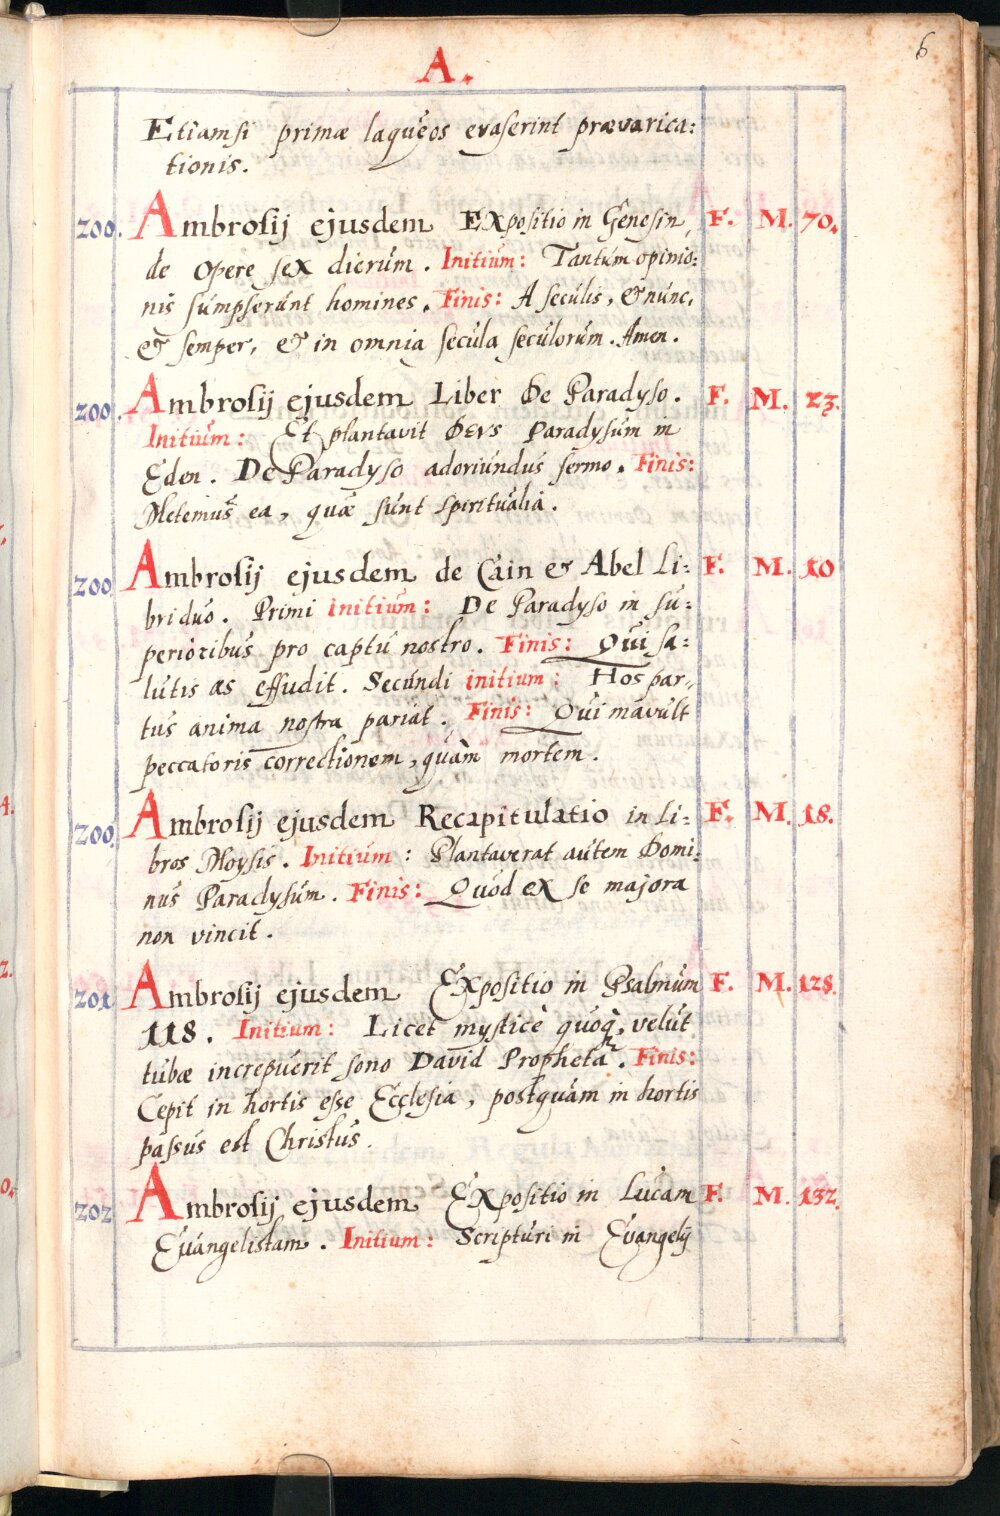 6
A.
Etiamsi primæ laqueos evaserint prævarica:
tionis.
200. Ambrosij ejusdem Expositio in Genesin, F. M. 70.
de Opere sex dierum. Initium: Tantum opinio:
nis sumpserunt homines. Finis: A seculis, & nunc,
& semper, & in omnia secula seculorum. Amen.
200. Ambrosij ejusdem Liber De Paradyso. F. M. 23.
Initium: Et plantavit DEVS Paradysum in
Eden. De Paradyso adoriundus sermo. Finis:
Metemus ea, quæ sunt spiritualia.
200 Ambrosij ejusdem de Cain & Abel Li: F. M. 10
bri duo. Primi initium: De Paradyso in su:
perioribus pro captu nostro. Finis: Qui sa:
lutis æs effudit. Secundi initium: Hos par,,
tus anima nostra pariat. Finis: Qui mavult
peccatoris correctionem, quàm mortem.
200 Ambrosij ejusdem Recapitulatio in Li: F. M. 18.
bros Moysis. Initium: Plantaverat autem Domi:
nus Paradysum. Finis: Quod ex se majora
non vincit.
201 Ambrosij ejusdem Expositio in Psalmum F. M. 128.
118. Initium: Licet mysticè quoq, velut
tubæ increpuerit sono David Propheta. Finis:
Cepit in hortis esse Ecclesia, postquam in hortis
passus est Christus.
202 Ambrosij ejusdem Expositio in Lucam F. M. 132.
Euangelistam. Initium: Scripturi in Evangelij